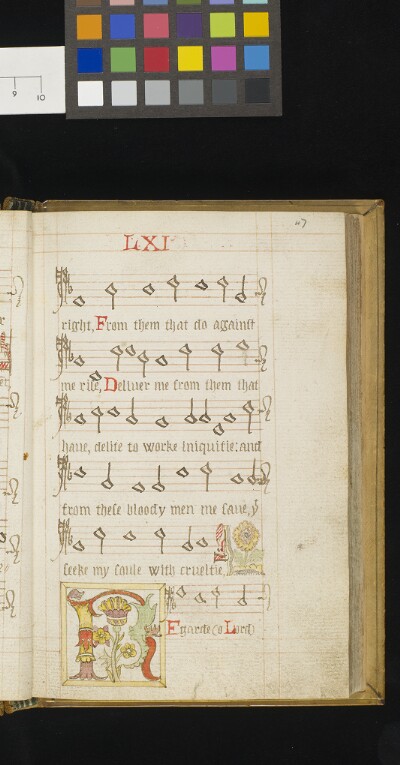 9 10
47
LXI
right, From them that do against
me rise, Deliuer me from them that
haue, delite to worke iniquitie: and
from these bloody men me saue, ẏ
seeke my soule with crueltie.
REgarde (o Lord)